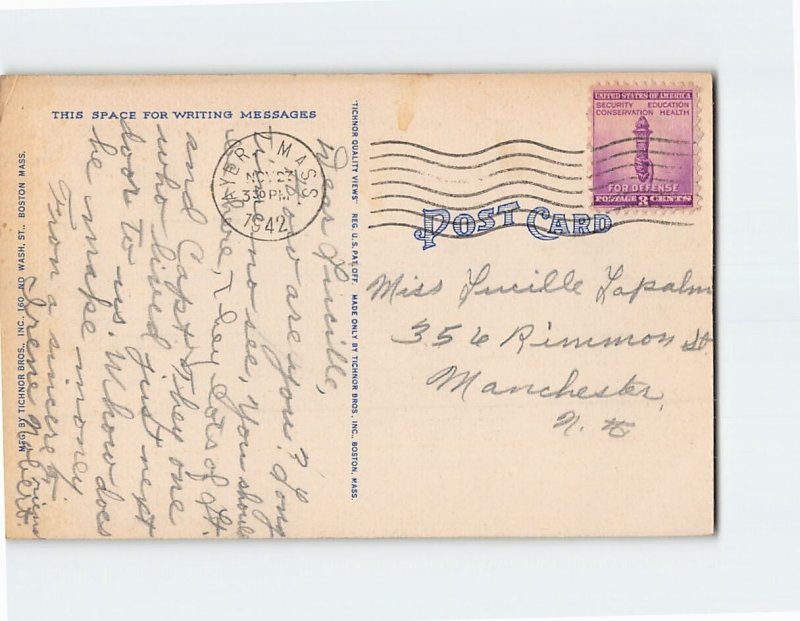 THIS SPACE FOR WRITING MESSAGES
Dear Lucille,
How are you? Long
time no see, You should
be here, They lots of Lt.
and Capt. They one
who lived just next
door to us. Whow does
he make money
From a sincere friend
Irene Nobert.
MFG BY TICHNOR BROS., INC., 160 NO WASH. ST., BOSTON MASS.
"TICHNOR QUALITY VIEWS" REG. U.S. PAT. OFF. MADE ONLY BY TICHNOR BROS., INC., BOSTON, MASS.
AYER MASS
330 PM
1942
UNITED STATES OF AMERICA
SECURITY EDUCATION
CONSERVATION HEALTH
FOR DEFENSE
POSTAGE 3 CENTS
POST CARD
Miss Lucille Lapalm
356 Rimmon St
Manchester,
N. H